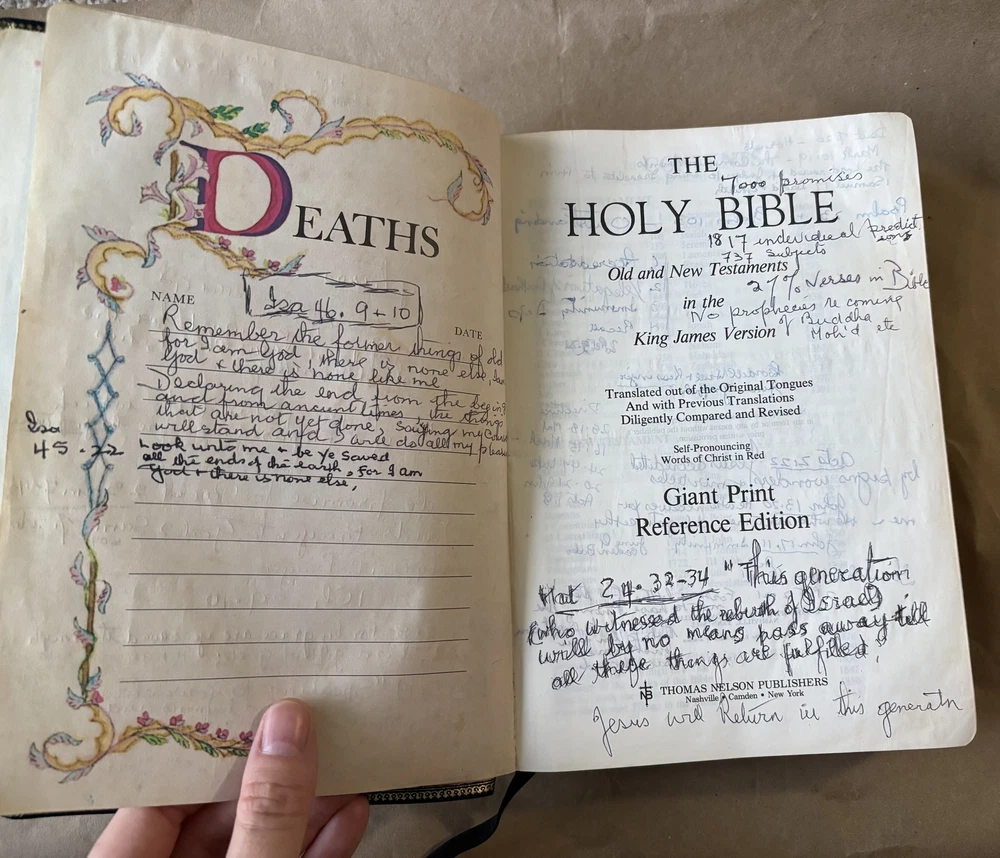 DEATHS
NAME
DATE
Isa 46. 9 + 10
Remember the former things of old
for I am God, there is none else, I am
God + there is none like me
Declaring the end from the begin
and from ancient times, the things
that are not yet done, Saying my Couns
will stand and I will do all my pleasu
Isa
45.22
Look unto me + be ye saved
all the ends of the earth, for I am
God + there is none else,
THE
7000 promises
HOLY BIBLE
1817 individual predict
ions
737 Subjects
Old and New Testaments
27% Verses in Bible
in the
No prophecies re coming
of Buddha
King James Version
Moh'd etc
Translated out of the Original Tongues
And with Previous Translations
Diligently Compared and Revised
Self-Pronouncing
Words of Christ in Red
Giant Print
Reference Edition
Mat 24. 32-34 "This generation
(who witnessed the rebirth of Israel)
will by no means pass away till
all these things are fulfilled!
THOMAS NELSON PUBLISHERS
Nashville • Camden • New York
Jesus will Return in this generatn